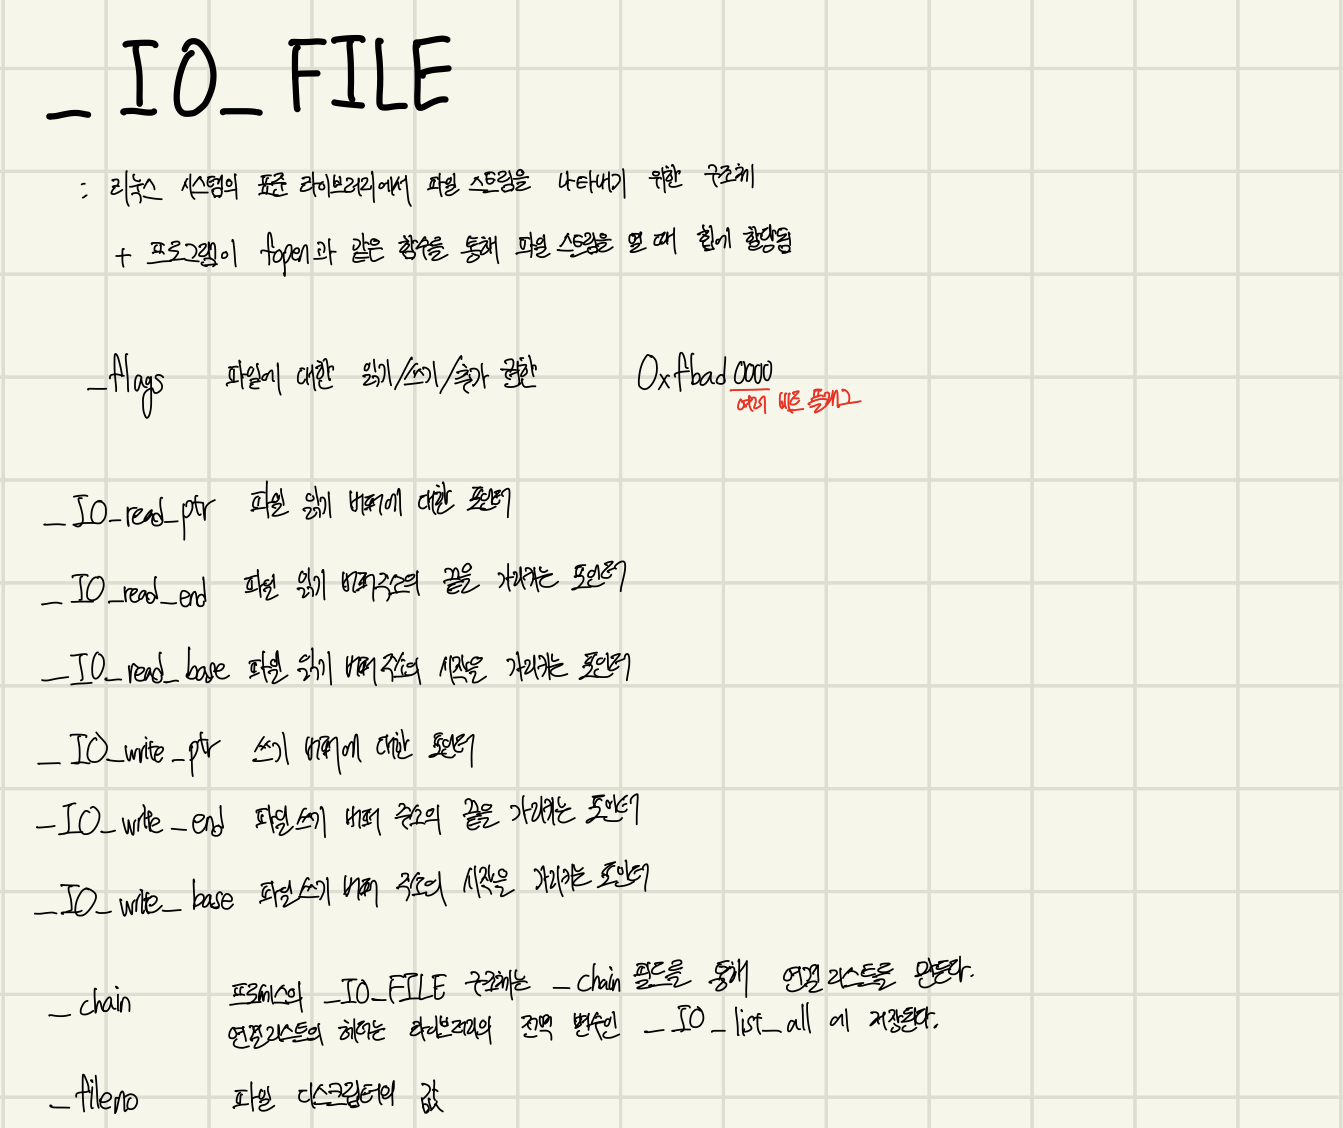 _IO_FILE
: 리눅스 시스템의 표준 라이브러리에서 파일 스트림을 나타내기 위한 구조체
+ 프로그램이 fopen과 같은 함수를 통해 파일 스트림을 열 때 힙에 할당됨
_flags 파일에 대한 읽기/쓰기/추가 권한 0xfbad0000
여러 비트 플래그
_IO_read_ptr 파일 읽기 버퍼에 대한 포인터
_IO_read_end 파일 읽기 버퍼주소의 끝을 가리키는 포인터
_IO_read_base 파일 읽기 버퍼 주소의 시작을 가리키는 포인터
_IO_write_ptr 쓰기 버퍼에 대한 포인터
_IO_write_end 파일쓰기 버퍼 주소의 끝을 가리키는 포인터
_IO_write_base 파일쓰기 버퍼 주소의 시작을 가리키는 포인터
_chain 프로세스의 _IO_FILE 구조체는 _chain 필드를 통해 연결 리스트를 만든다.
연결리스트의 헤더는 라이브러리의 전역 변수인 _IO_list_all 에 저장된다.
_fileno 파일 디스크립터의 값